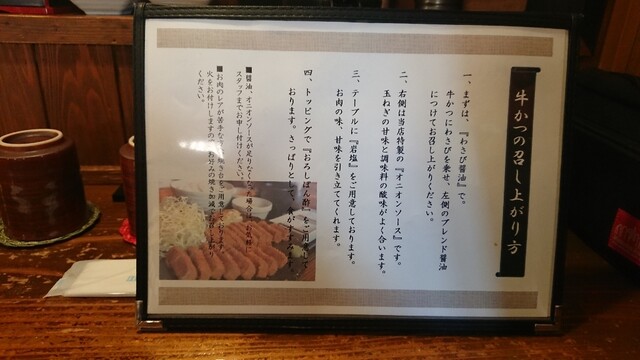 牛かつの召し上がり方
一、まずは、『わさび醤油』で。
牛かつにわさびを乗せ、左側のブレンド醤油
につけてお召し上がりください。
二、右側は当店特製の『オニオンソース』です。
玉ねぎの甘味と調味料の酸味がよく合います。
三、テーブルに『岩塩』をご用意しております。
お肉の味、甘味を引き立ててくれます。
四、トッピングで『おろしぽん酢』をご用意して
おります。さっぱりとして、食がすすみます。
■醤油、オニオンソースが足りなくなった場合は、お気軽に
スタッフまでお申し付けください。
■お肉のレアが苦手な
火をお付けしますので、お好みの焼き加減で
ください。